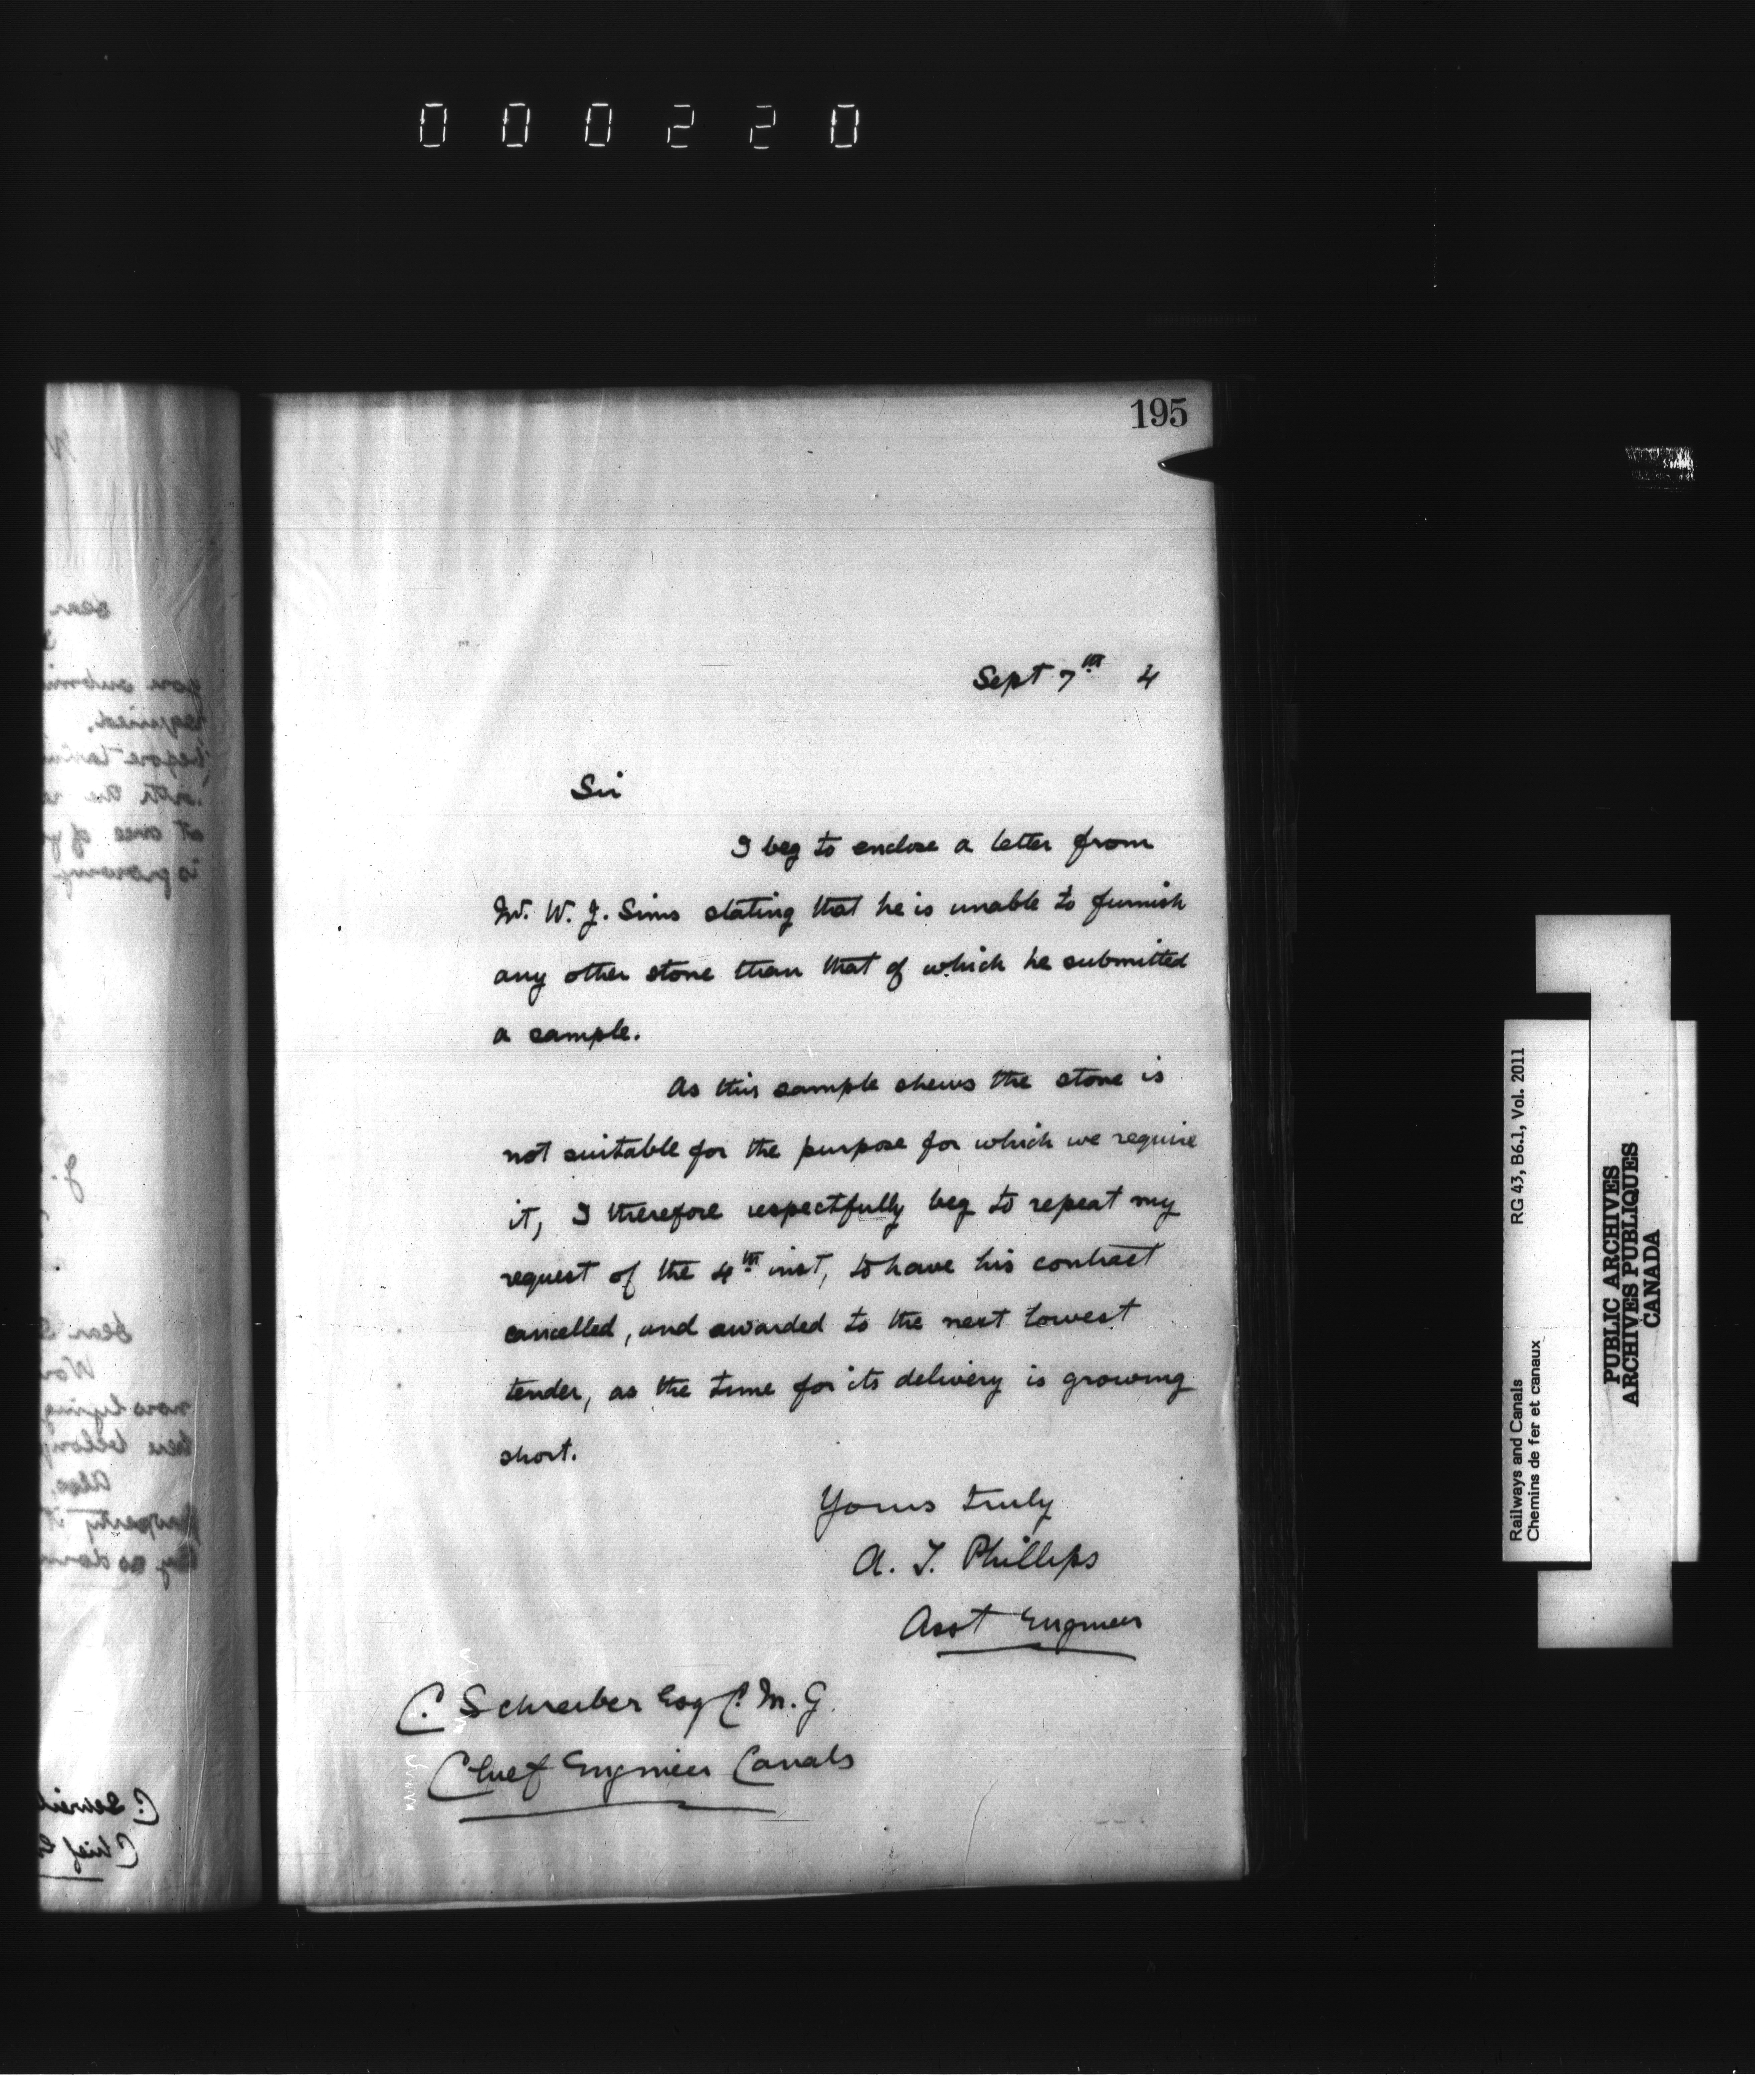 000220
195
Sept 7th 4
Sir
I beg to enclose a letter from
Mr. W. J. Sims stating that he is unable to furnish
any other stone than that of which he submitted
a sample.
As this sample shews the stone is
not suitable for the purpose for which we require
it, I therefore respectfully beg to repeat my
request of the 4th inst, to have his contract
cancelled, and awarded to the next lowest
tender, as the time for its delivery is growing
short.
Yours truly
A. T. Phillips
Asst Engineer
C. Schreiber Esq C. M. G.
Chief Engineer Canals
Railways and Canals RG 43, B6.1, Vol. 2011
Chemins de fer et canaux
PUBLIC ARCHIVES
ARCHIVES PUBLIQUES
CANADA